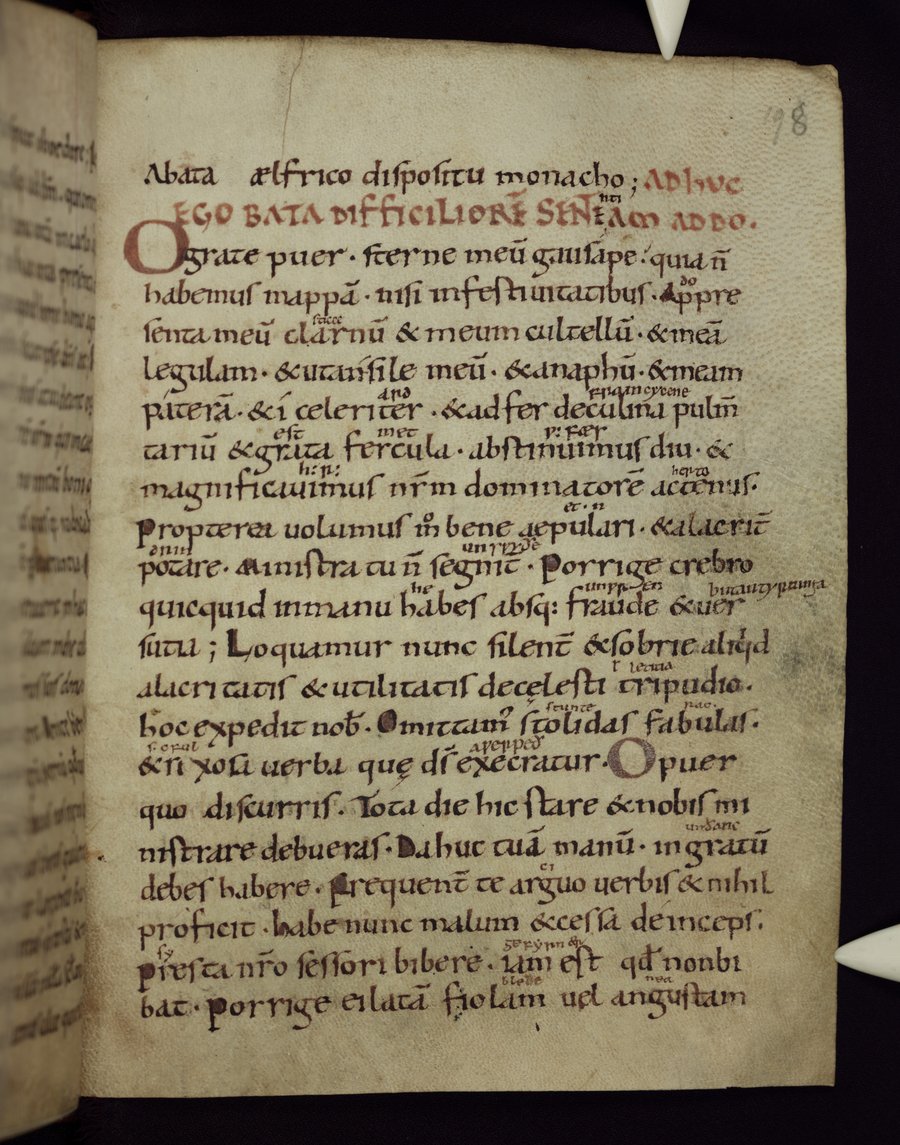 198
Abata ælfrico dispositu monacho; ADHUC
EGO BATA DIFFICILIORĒ SENTĒAM ADDO.
O grate puer. sterne meū gausape. quia n̄
habemus mappā. nisi in festiuitatibus. Appre
senta meū clarnū & meum cultellū. & meā
legulam. & utansile meū. & anaphū. & meam
paterā. & i celeriter. & adfer deculina pulm̄
tariū & grata fercula. abstinuimus diu. &
magnificauimus nr̄m dominatorē actenus.
Propterea uolumus m̊ bene aepulari. & alacrit̄
potare. Ministra tu n̄ segnit̄. Porrige crebro
quicquid in manu habes absq: fraude & uer
sutia; Loquamur nunc silent̄ & sobrie aliqd
alacritatis & utilitatis decęlesti tripudio.
hoc expedit nob̄. Omittam' stolidas fabulas.
& rixosa uerba quę ds̄ execratur. O puer
quo discurris. Tota die hic stare & nobis mi
nistrare debueras. Da huc tuā manū. ingratū
debes habere. Frequent̄ te arguo uerbis & nihil
proficit. habe nunc malum & cessa deinceps.
Presta nr̄o sessori bibere. iam est qd̄ non bi
bat. Porrige ei latā fiolam uel angustam